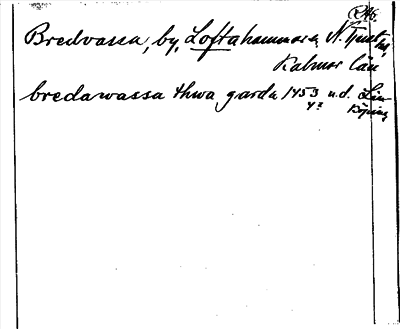 Bredvassa, by, Loftahammars, N. Tjusts,
Kalmar län
bredawassa thwa garda 1453 u.d. Lin-
köping